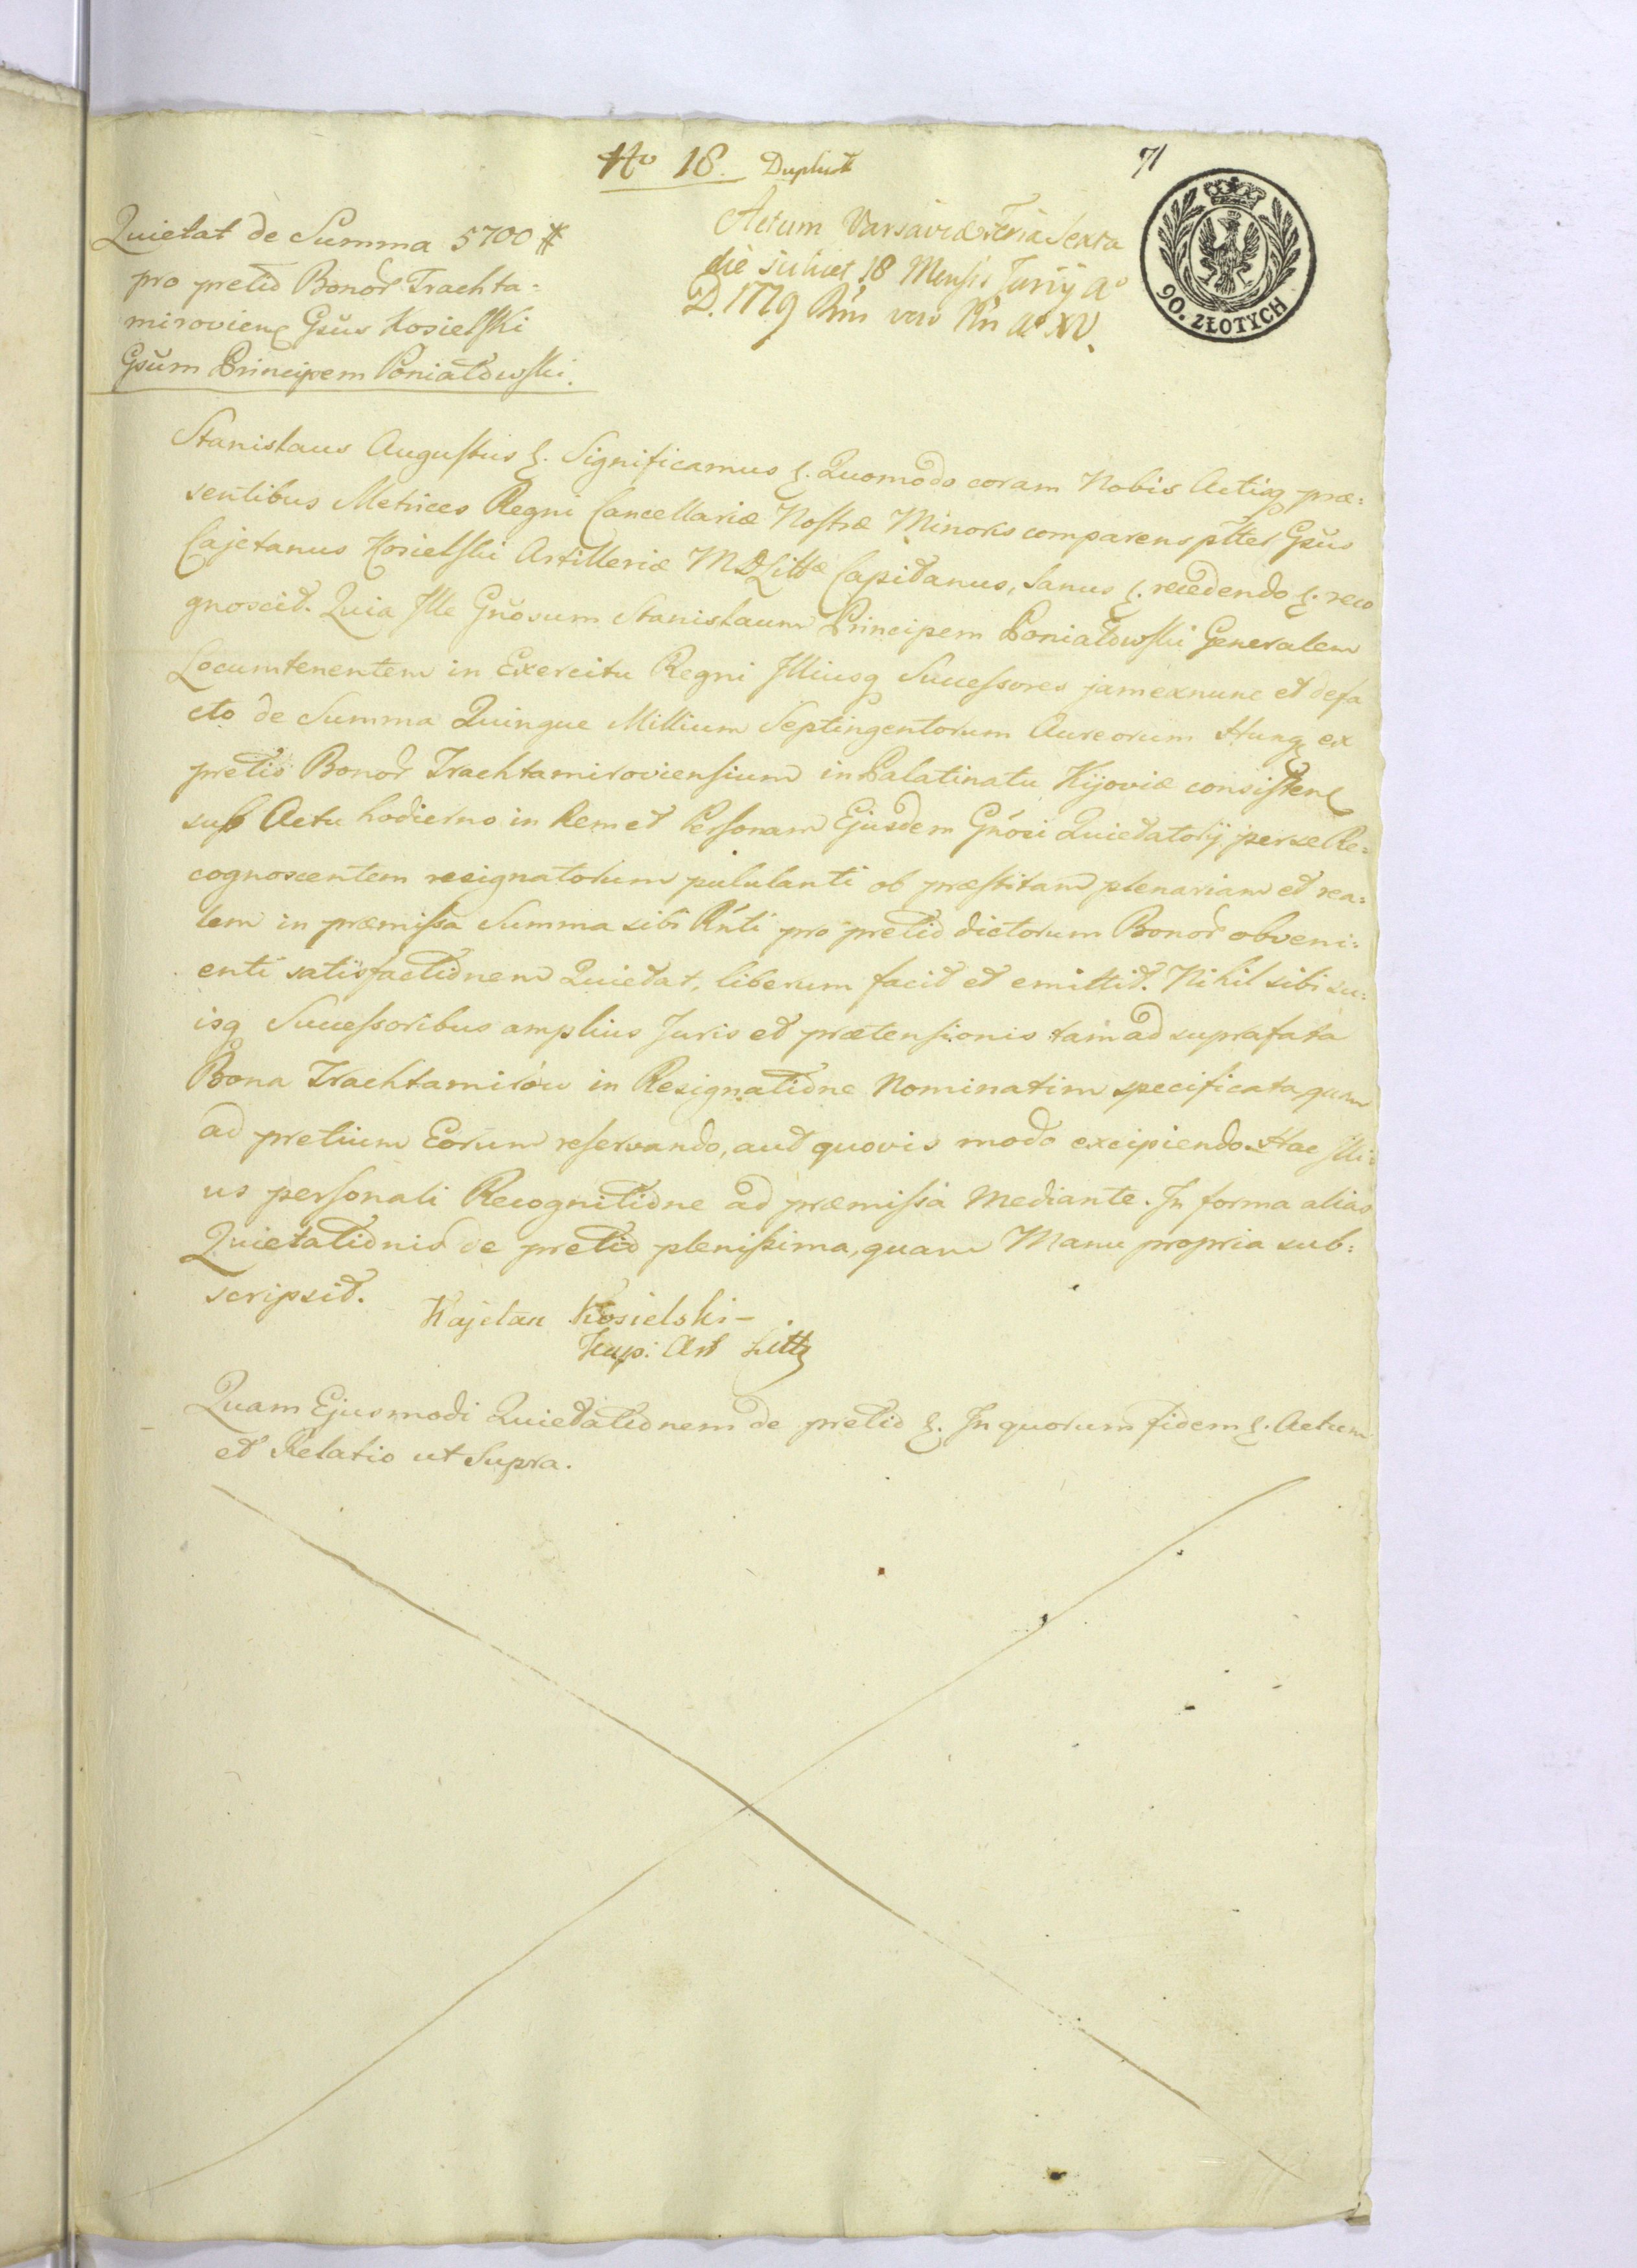 No 18. Duplicat
71
90. ZŁOTYCH
Actum Varsaviæ Feria Sexta
die scilicet 18 Mensis Junij Ao
D. 1779 Rni vero Nri Ao XV.
Quietat de Summa 5700 #
pro pretio Bonor Trachta=
mirovien Gsus Kosielski
Gsum Principem Poniatowski.
Stanislaus Augustus &. Significamus &. Quomodo coram Nobis Actisq præ=
sentibus Metrices Regni Cancellariæ Nostræ Minoris comparens ptter Gsus
Cajetanus Kosielski Artilleriæ MDLittæ Capitanus, Sanus &. recedendo &. reco
gnoscit. Quia Ille Gnosum Stanislaum Principem Poniatowski Generalem
Locumtenentem in Exercitu Regni Illiusq Successores jam exnunc et defa
cto de Summa Quinque Millium Septingentorum Aureorum Hung ex
pretio Bonor Trachtamiroviensium in Palatinatu Kijoviæ consisten
sub Actu hodierno in Rem et Personam Ejusdem Gnosi Quietatorij per se Re=
cognoscentem resignatorum pululanti ob præstitam plenariam et rea=
lem in præmissa Summa sibi Rnti pro pretio dictorum Bonor obveni=
enti satisfactionem Quietat, liberum facit et emittit. Nihil sibi su=
isq Successoribus amplius Juris et prætensionis tam ad suprafata
Bona Trachtamirów in Resignatione Nominatim specificata, quam
ad pretium Eorum reservando, aut quovis modo excipiendo. Hac Illi=
us personali Recognitione ad præmissa Mediante. In forma alias
Quietationis de pretio plenissima, quam Manu propria sub=
scripsit.
Kajetan Kosielski-
Kap: Art Litt
Quam Ejusmodi Quietationem de pretio &. In quorum fidem &. Actum
et Relatio ut Supra.